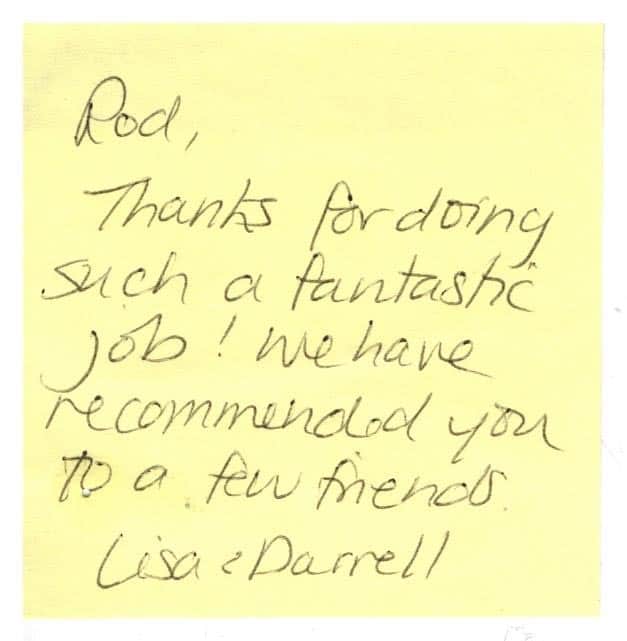 Rod,
Thanks for doing
such a fantastic
job! We have
recommended you
to a few friends.
Lisa & Darrell